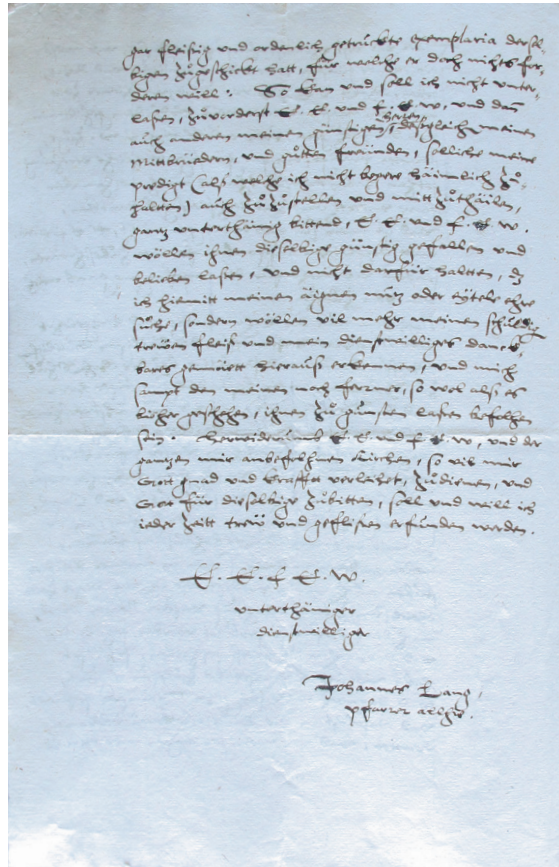 gar fleisig und ordenlich getruckte exemplaria dersel-
bigen zůgeschickt hatt, für welche er doch nichts for-
deren will: So kan und soll ich nicht unter-
lasen, zůvorderst E. E. und f. E. W., und dan
Herren
auch anderen meinen günstigen, desgleichen meinen
Mittbrüedern, und gůtten freünden, solliche meine
predigt (als welche ich nicht begere häimlich zů
haltten) auch zůzůstellen und mitt zůthäilen,
gantz unterthänig bittend, E. E. und f. E. W.
wöllen ihnen dieselbige günstig gefallen und
belieben lasen, und nicht darfür haltten, dz
ich hiemitt meinen äignen nutz oder eÿtele ehre
sůche, sondern wöllen vil mehr meinen schuldig
treüen fleis und mein dienstwilliges danck-
bares gemüett hierauss erkennen, und mich
sampt den meinen noch ferrner, so wol als es
bisher geschehen, ihnen zů gunsten lasen befolhen
sein. Herwiderumb E. E. und f. E. W., und der
gantzen mir anbefolhnen kirchen, so vil mir
Gott gnad und krafft verleihet, zůdienen, und
Gott für dieselbige zůbitten, soll und will ich
ieder zeitt treü und geflisen erfunden werden.
E. E. f. E. W.
unterthäniger
dienstwilliger
Johannes Lang,
pfarrer